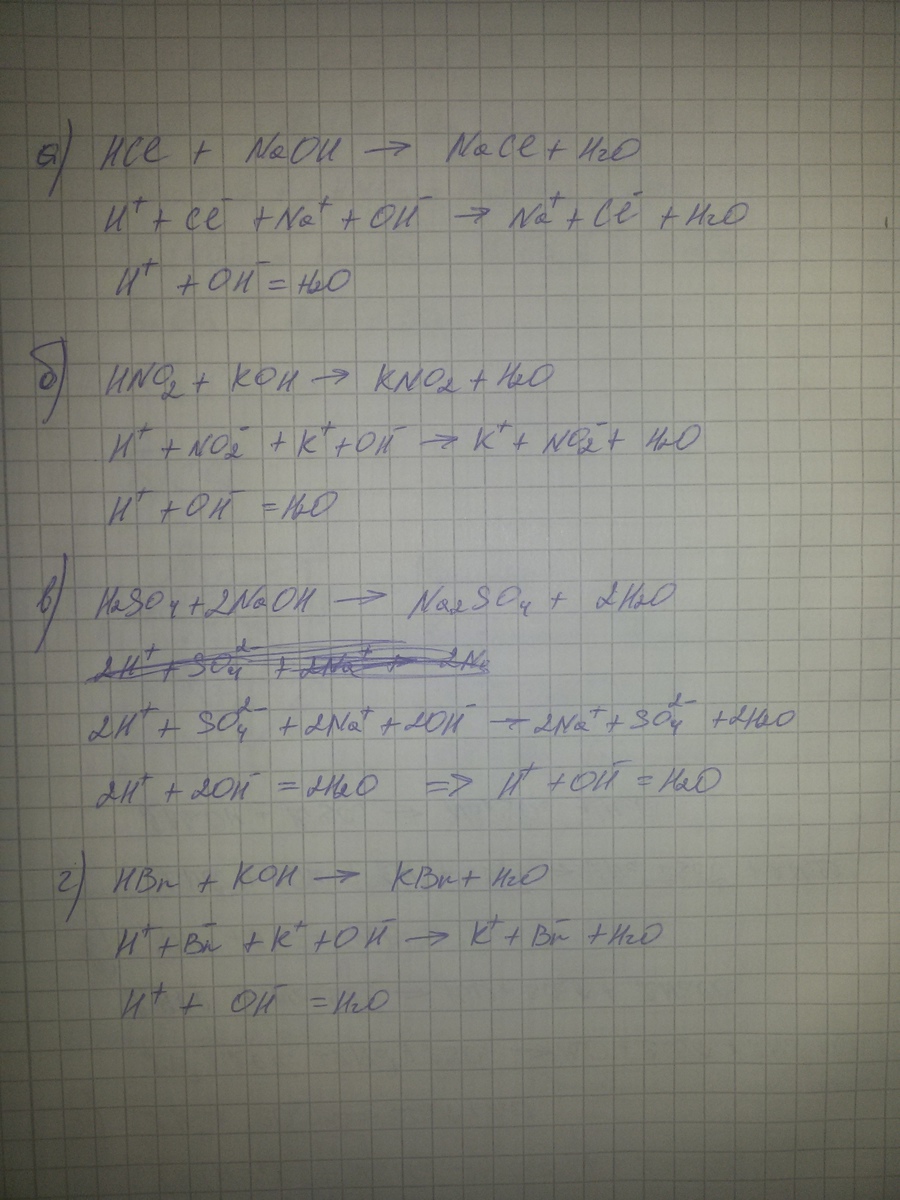 а) HCl + NaOH → NaCl + H₂O
H⁺ + Cl⁻ + Na⁺ + OH⁻ → Na⁺ + Cl⁻ + H₂O
H⁺ + OH⁻ = H₂O
б) HNO₂ + KOH → KNO₂ + H₂O
H⁺ + NO₂⁻ + K⁺ + OH⁻ → K⁺ + NO₂⁻ + H₂O
H⁺ + OH⁻ = H₂O
в) H₂SO₄ + 2NaOH → Na₂SO₄ + 2H₂O
2H⁺ + SO₄²⁻ + 2Na⁺ + 2Na
2H⁺ + SO₄²⁻ + 2Na⁺ + 2OH⁻ → 2Na⁺ + SO₄²⁻ + 2H₂O
2H⁺ + 2OH⁻ = 2H₂O => H⁺ + OH⁻ = H₂O
г) HBr + KOH → KBr + H₂O
H⁺ + Br⁻ + K⁺ + OH⁻ → K⁺ + Br⁻ + H₂O
H⁺ + OH⁻ = H₂O